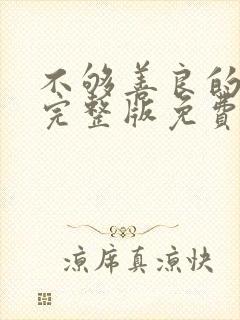 不够善良的
完整版免费
凉席真凉快